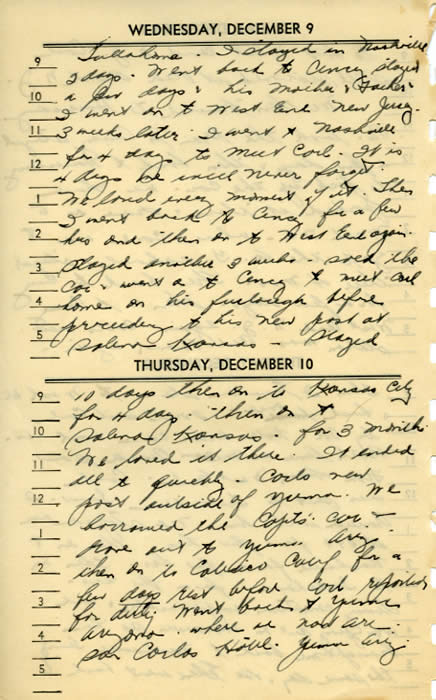 WEDNESDAY, DECEMBER 9
9 Tullahoma. I stayed in Nashville
2 days. Went back to Cincy stayed
10 a few days & his Mother & Father
I went on to West End New Jersey.
11 3 weeks later I went to Nashville
12 for 4 days to meet Carl. It is
4 days he will never forget.
1 We loved every moment of it. Then
I went back to Cincy for a few
2 hrs and then on to West End again.
3 Stayed another 3 weeks - sold the
car - went on to Cincy to meet Carl
4 home on his furlough before
proceeding to his new post at
5 Salina Kansas - Stayed
THURSDAY, DECEMBER 10
9 10 days then on to Kansas City
for 4 days. then on to
10 Salina Kansas. for 3 months.
11 We loved it there. It ended
all to quickly. Carls new
12 post outside of Yuma. We
borrowed the Capt's. car -
1 drove out to Yuma Ariz.
2 then on to Calexico Calif for a
few days rest before Carl reported
3 for duty Went back to Yuma
4 Arizona. where we now are.
San Carlos Hotel. Yuma Ariz.
5